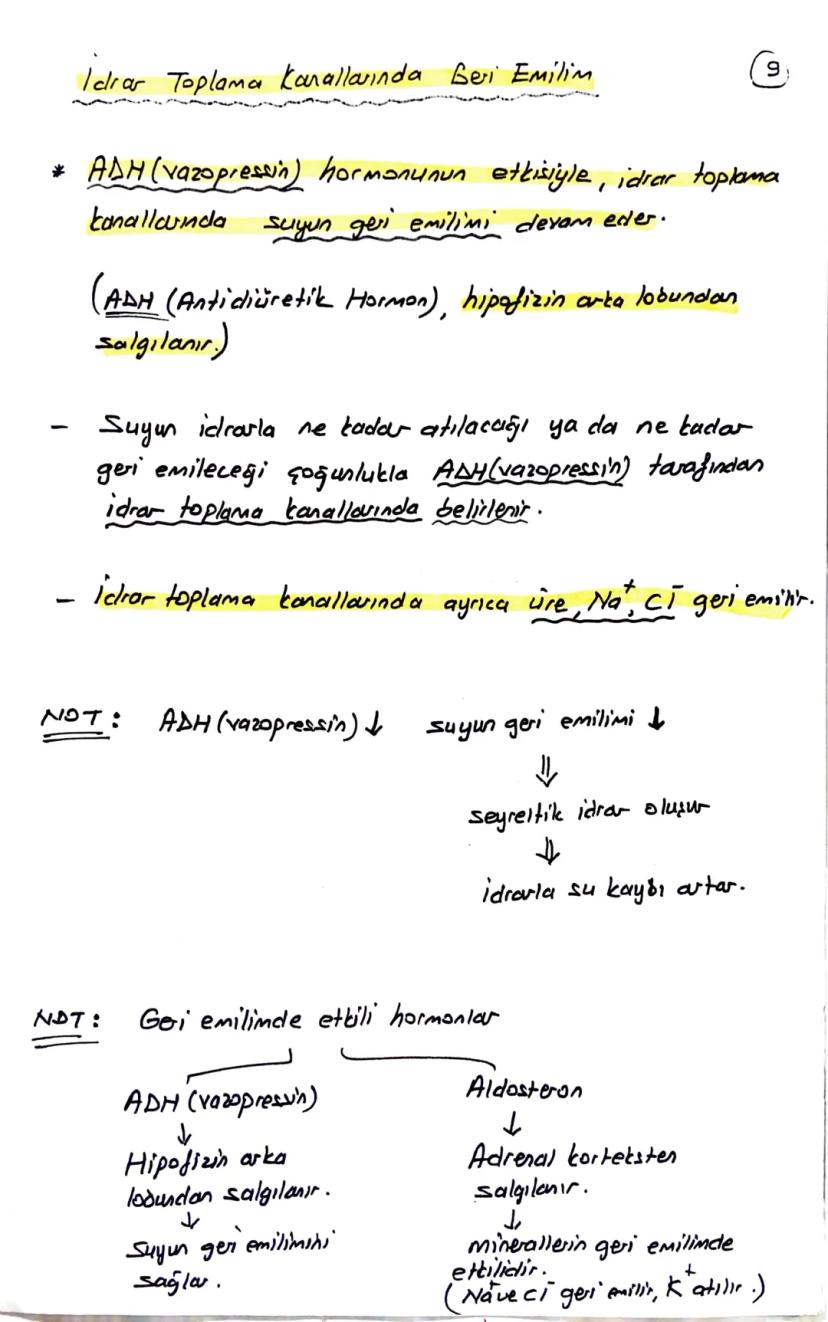 İdrar Toplama Kanallarında Geri Emilim
9
* ADH (vazopressin) hormonunun etkisiyle, idrar toplama
kanallarında suyun geri emilimi devam eder.
(ADH (Antidiüretik Hormon), hipofizin arka lobundan
salgılanır.)
- Suyun idrarla ne kadar atılacağı ya da ne kadar
geri emileceği çoğunlukla ADH (vazopressin) tarafından
idrar toplama kanallarında belirlenir.
- İdrar toplama kanallarında ayrıca üre, Na⁺, Cl⁻ geri emilir.
NOT: ADH (vazopressin) ↓ suyun geri emilimi ↓
⇓
seyreltik idrar oluşur
↓
idrarla su kaybı artar.
NOT: Geri emilimde etkili hormonlar
ADH (vazopressin)
↓
Hipofizin arka
lobundan salgılanır.
↓
Suyun geri emilimini
sağlar.
Aldosteron
↓
Adrenal korteksten
salgılanır.
↓
minerallerin geri emilimde
etkilidir.
(Na⁺ ve Cl⁻ geri emilir, K⁺ atılır.)